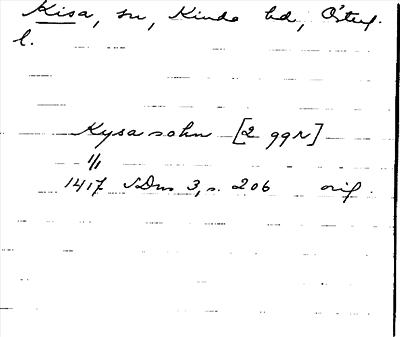 Kisa, sn, Kinda hd, Östergl.
l.
Kysa sokn [2 ggr]
1/1
1417 SDns 3, s. 206 orig.